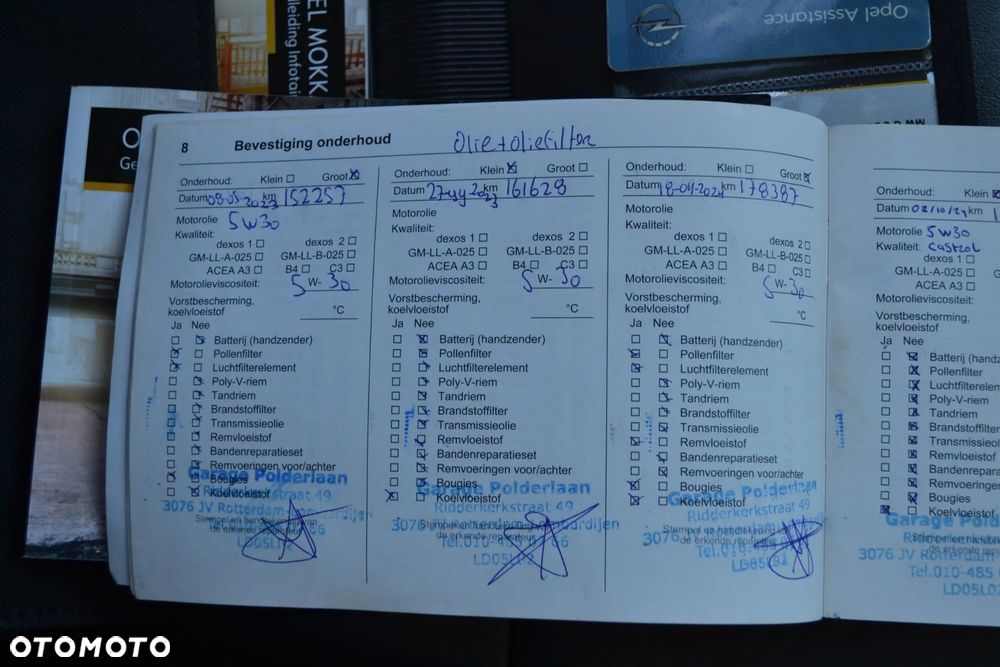 EL MOKK
lleiding Infotain
Opel Assistance
O
Ge
8 Bevestiging onderhoud
Olie + oliefilter
Onderhoud: Klein Groot
Datum 08-05-2023 km 152257
Motorolie 5W30
Kwaliteit:
dexos 1 dexos 2
GM-LL-A-025 GM-LL-B-025
ACEA A3 B4 C3
Motorolieviscositeit: 5 W- 30
Vorstbescherming,
koelvloeistof °C
Ja Nee
Batterij (handzender)
Pollenfilter
Luchtfilterelement
Poly-V-riem
Tandriem
Brandstoffilter
Transmissieolie
Remvloeistof
Bandenreparatieset
Remvoeringen voor/achter
Bougies
Koelvloeistof
Garage Polderlaan
Ridderkerkstraat 49
3076 JV Rotterdam
Stempel en handtekening van
de erkende reparateur
LD05L02
Onderhoud: Klein Groot
Datum 27 2023 km 161628
Motorolie
Kwaliteit:
dexos 1 dexos 2
GM-LL-A-025 GM-LL-B-025
ACEA A3 B4 C3
Motorolieviscositeit: 5 W- 30
Vorstbescherming,
koelvloeistof °C
Ja Nee
Batterij (handzender)
Pollenfilter
Luchtfilterelement
Poly-V-riem
Tandriem
Brandstoffilter
Transmissieolie
Remvloeistof
Bandenreparatieset
Remvoeringen voor/achter
Bougies
Koelvloeistof
Garage Polderlaan
Ridderkerkstraat 49
Stempel en handtekening van
de erkende reparateur
LD05L02
Onderhoud: Klein Groot
Datum 18-04-2024 km 178387
Motorolie
Kwaliteit:
dexos 1 dexos 2
GM-LL-A-025 GM-LL-B-025
ACEA A3 B4 C3
Motorolieviscositeit: 5 W- 30
Vorstbescherming,
koelvloeistof °C
Ja Nee
Batterij (handzender)
Pollenfilter
Luchtfilterelement
Poly-V-riem
Tandriem
Brandstoffilter
Transmissieolie
Remvloeistof
Bandenreparatieset
Remvoeringen voor/achter
Bougies
Koelvloeistof
Garage Polderlaan
Ridderkerkstraat 49
Stempel en handtekening van
de erkende reparateur
LD05L02
Onderhoud: Klein
Datum 02/10/24 km 1
Motorolie 5W30
Kwaliteit: Castrol
dexos 1
GM-LL-A-025
ACEA A3
Motorolieviscositeit:
Vorstbescherming,
koelvloeistof
Ja Nee
Batterij (handz
Pollenfilter
Luchtfilterelem
Poly-V-riem
Tandriem
Brandstoffilter
Transmissieo
Remvloeistof
Bandenrepara
Remvoeringen
Bougies
Koelvloeistof
Garage Polde
Ridderkerkstra
3076 JV Rotterdam
Tel.010-485
LD05L02
OTOMOTO